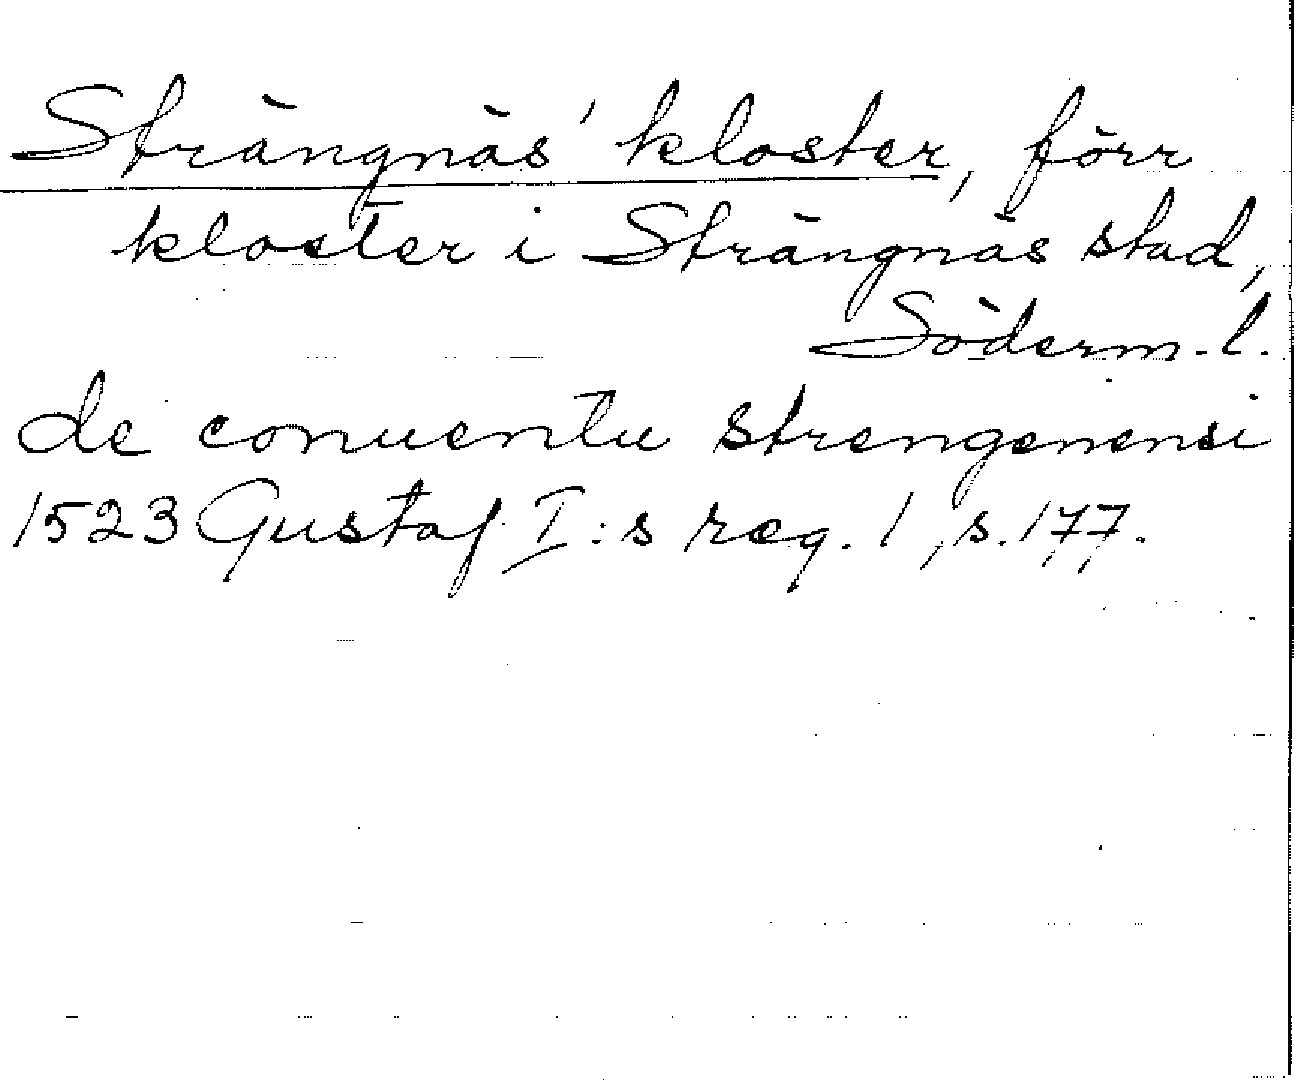 Strängnäs' kloster, förr
kloster i Strängnäs stad,
Söderm. l.
de conuentu strengenensi
1523 Gustaf I:s reg. 1, s. 177.